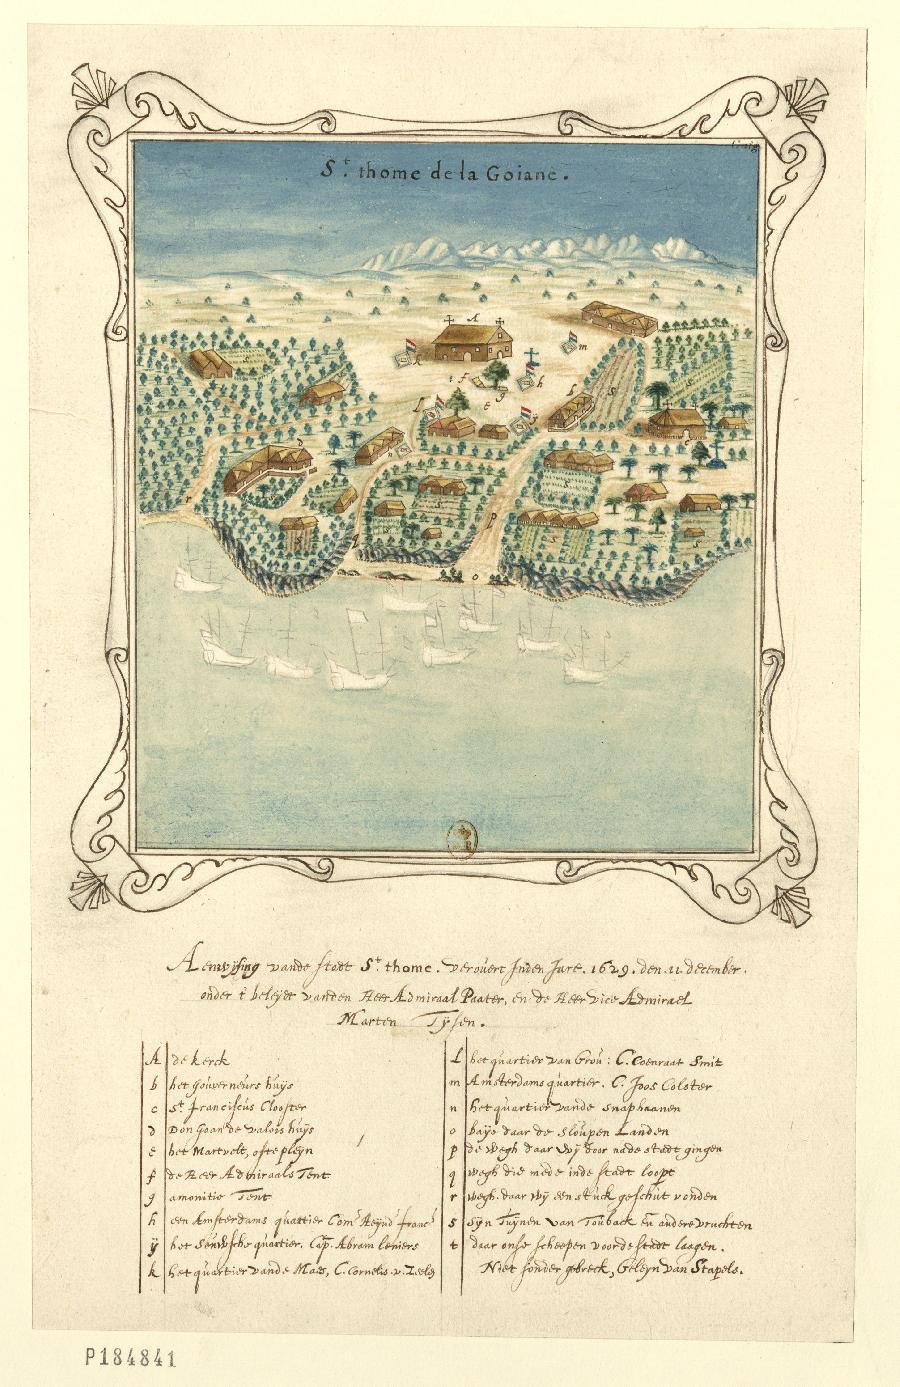 St. thome de la Goiane.
Aenwijsing vande stadt St. thome. verovert Inden Jare. 1629. den. 11. december.
onder t beleydt vanden Heer Admiraal Paater, en de Heer vice Admirael
Marten Tijsen.
A de kerck
b het gouverneurs huijs
c St. franciscus Clooster
d Don Goan de valois huijs
e het Martvelt, ofte pleijn
f de Heer Admiraals Tent
g amonitie Tent
h een Amsterdams quartier
ÿ het quartier. Cap. Abram
k het quartier vande Mase, C. Cornelis v.
L het quartier van Coenraat Smit
m Amsterdams quartier. C. Joos Colster
n het quartier vande snaphaanen
o baije daar de sloupen Landen
p de wegh daar wij door nade stadt gingen
q wegh die mede inde stadt loopt
r wegh. daar wij een stuck geschut vonden
s sijn Tuijnen van Touback en andere vruchten
t daar onse scheepen voor de stadt laagen.
Niet sonder gebreck, Geleijn van Stapels.
P184841